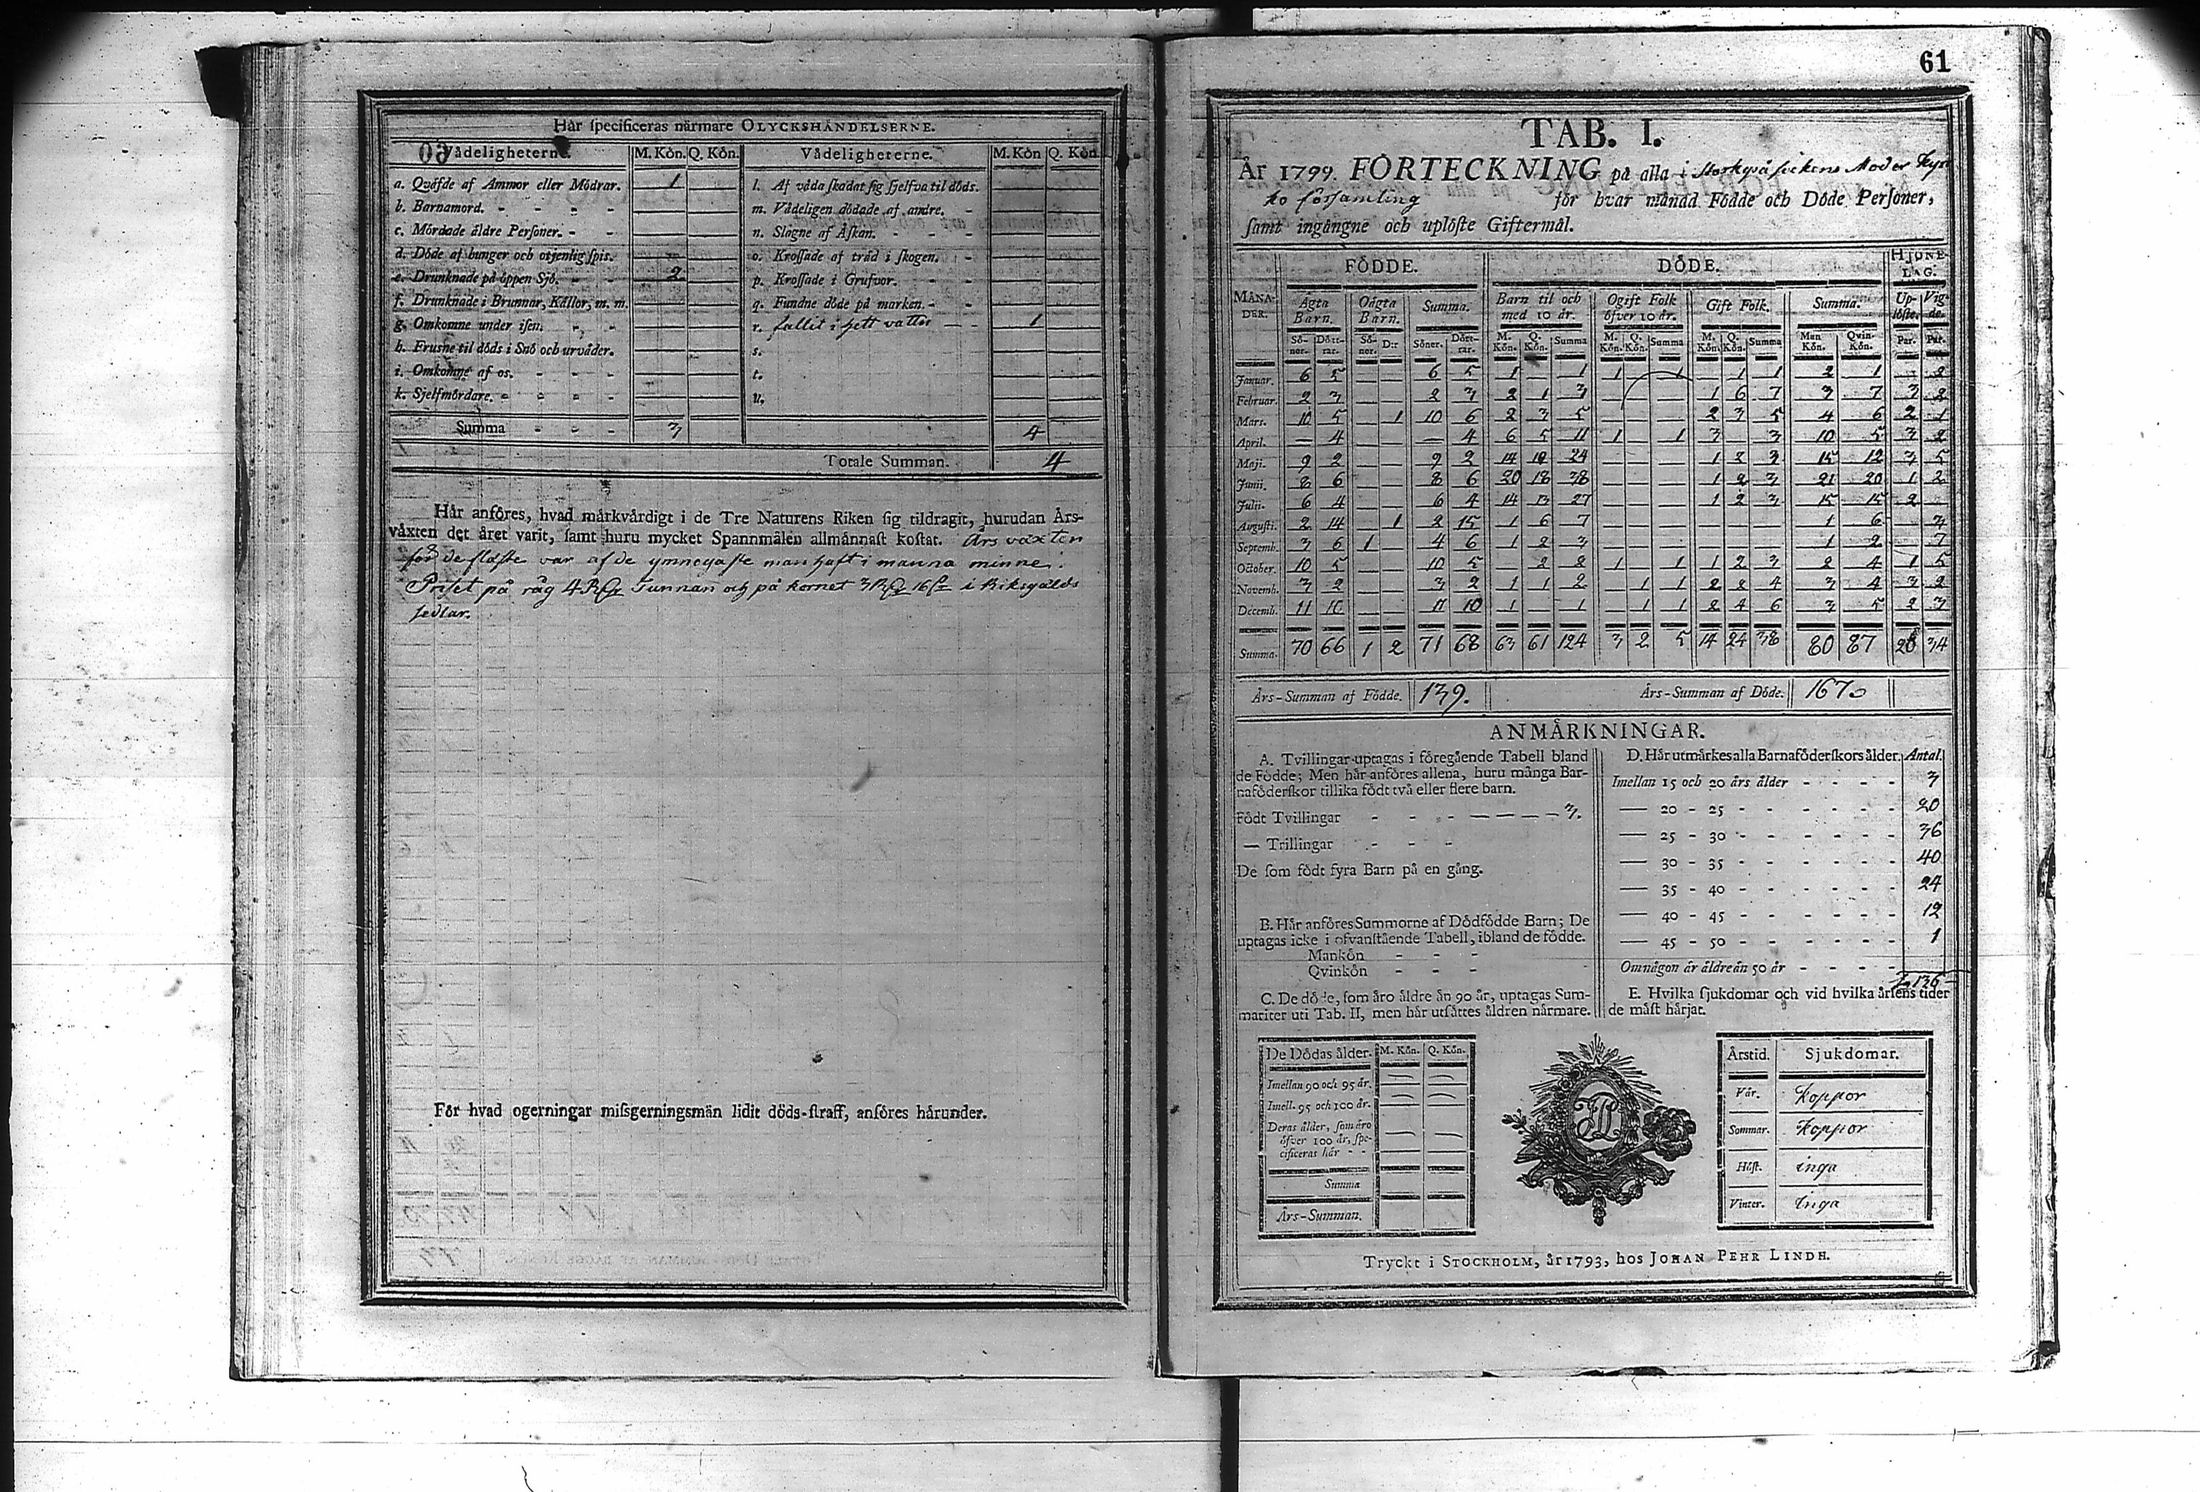 Hår specificeras närmare OLYCKSHÄNDELSERNE.
Vådeligheterne. M. Kön. Q. Kön. Vådeligheterne. M. Kön Q. Kön
a. Qväfde af Ammor eller Mödrar. 1 l. Af våda skadat sig sjelfva til döds.
b. Barnamord. m. Vådeligen dödade af andre.
c. Mördade äldre Personer. n. Slagne af Åskan.
d. Döde af hunger och otjenlig spis. o. Krossade af träd i skogen.
e. Drunknade på öppen Sjö. 2 p. Krossade i Grufvor.
f. Drunknade i Brunnar, Källor, m. m. q. Fundne döde på marken.
g. Omkomne under isen. r. fallit i hett vatten 1
h. Frusne til döds i Snö och urväder. s.
i. Omkomne af os. t.
k. Sjelfmördare. u.
Summa 3 4
Totale Summan. 4
Hår anföres, hvad märkvärdigt i de Tre Naturens Riken sig tildragit, hurudan Års-
växten det året varit, samt huru mycket Spannmålen allmännast kostat. Års växten
för de fläste var af de ymnogaste i manna minne.
Priset på råg 4 Tunnan och på kornet 3 16 i Riksgälds
sedlar.
För hvad ogerningar missgerningsmän lidit döds-straff, anföres hårunder.
61
TAB. I.
År 1799. FÖRTECKNING på alla i Storkyro sockens Moder kyr
ko församling för hvar månad Födde och Döde Personer,
samt ingångne och uplöste Giftermål.
FÖDDE. DÖDE. HJONE-
LAG.
MÅNA-
DER. Ägta
Barn. Oägta
Barn. Summa. Barn til och
med 10 år. Ogift Folk
öfver 10 år. Gift Folk. Summa. Up-
löste. Vig-
de.
Sö-
ner. Dött-
rar. Sö-
ner. D:r Söner. Dött-
rar. M.
Kön. Q.
Kön. Summa M.
Kön. Q.
Kön. Summa M.
Kön. Q.
Kön. Summa Man
Kön. Qvin-
Kön. Par. Par.
Januar. 6 5 — — 6 5 1 — 1 1 — 1 — 1 1 2 1 — 2
Februar. 2 3 — — 2 3 2 1 3 1 6 7 3 7 3 2
Mars. 10 5 — 1 10 6 2 3 5 — — — 2 3 5 4 6 2 1
April. — 4 — — — 4 6 5 11 1 — 1 3 — 3 10 5 3 2
Maji. 9 2 — — 9 2 14 10 24 — — — 1 2 3 15 12 3 5
Junii. 8 6 — — 8 6 20 18 38 — — — 1 2 3 21 20 1 2
Julii. 6 4 — — 6 4 14 13 27 — — — 1 2 3 15 15 2
Augusti. 2 14 — 1 2 15 1 6 7 — — — — — — 1 6 — 3
Septemb. 3 6 1 — 4 6 1 2 3 — — — — — — 1 2 — 7
October. 10 5 — — 10 5 — 2 2 1 — 1 1 2 3 2 4 1 5
Novemb. 3 2 — — 3 2 1 1 2 — 1 1 2 2 4 3 4 3 2
Decemb. 11 10 — — 11 10 1 — 1 — 1 1 2 4 6 3 5 2 3
Summa. 70 66 1 2 71 68 63 61 124 3 2 5 14 24 38 80 87 20 34
Års-Summan af Födde. 139. Års-Summan af Döde. 167
ANMÄRKNINGAR.
A. Tvillingar uptagas i föregående Tabell bland
de Födde; Men här anföres allena, huru många Bar-
naföderskor tillika födt två eller flere barn.
Födt Tvillingar 3.
— Trillingar
De som födt fyra Barn på en gång.
B. Här anföres Summorne af Dödfödde Barn; De
uptagas icke i ofvanstående Tabell, ibland de födde.
Mankön
Qvinkön
C. De döde, som äro äldre än 90 år, uptagas Sum-
mariter uti Tab. II, men här utsättes åldren närmare.
D. Här utmärkes alla Barnaföderskors ålder. Antal.
Imellan 15 och 20 års ålder 3
— 20 - 25 20
— 25 - 30 36
— 30 - 35 40
— 35 - 40 24
— 40 - 45 12
— 45 - 50 1
Om någon är äldre än 50 år
136
E. Hvilka sjukdomar och vid hvilka årsens tider
de mäst härjat.
De Dödas ålder. M. Kön. Q. Kön.
Imellan 90 och 95 år.
Imell. 95 och 100 år.
Deras ålder, som äro
öfver 100 år, spe-
cificeras här
Summa
Års-Summan.
Årstid. Sjukdomar.
Vår. Koppor
Sommar. Koppor
Höst. inga
Vinter. inga
Tryckt i STOCKHOLM, år 1793, hos JOHAN PEHR LINDH.